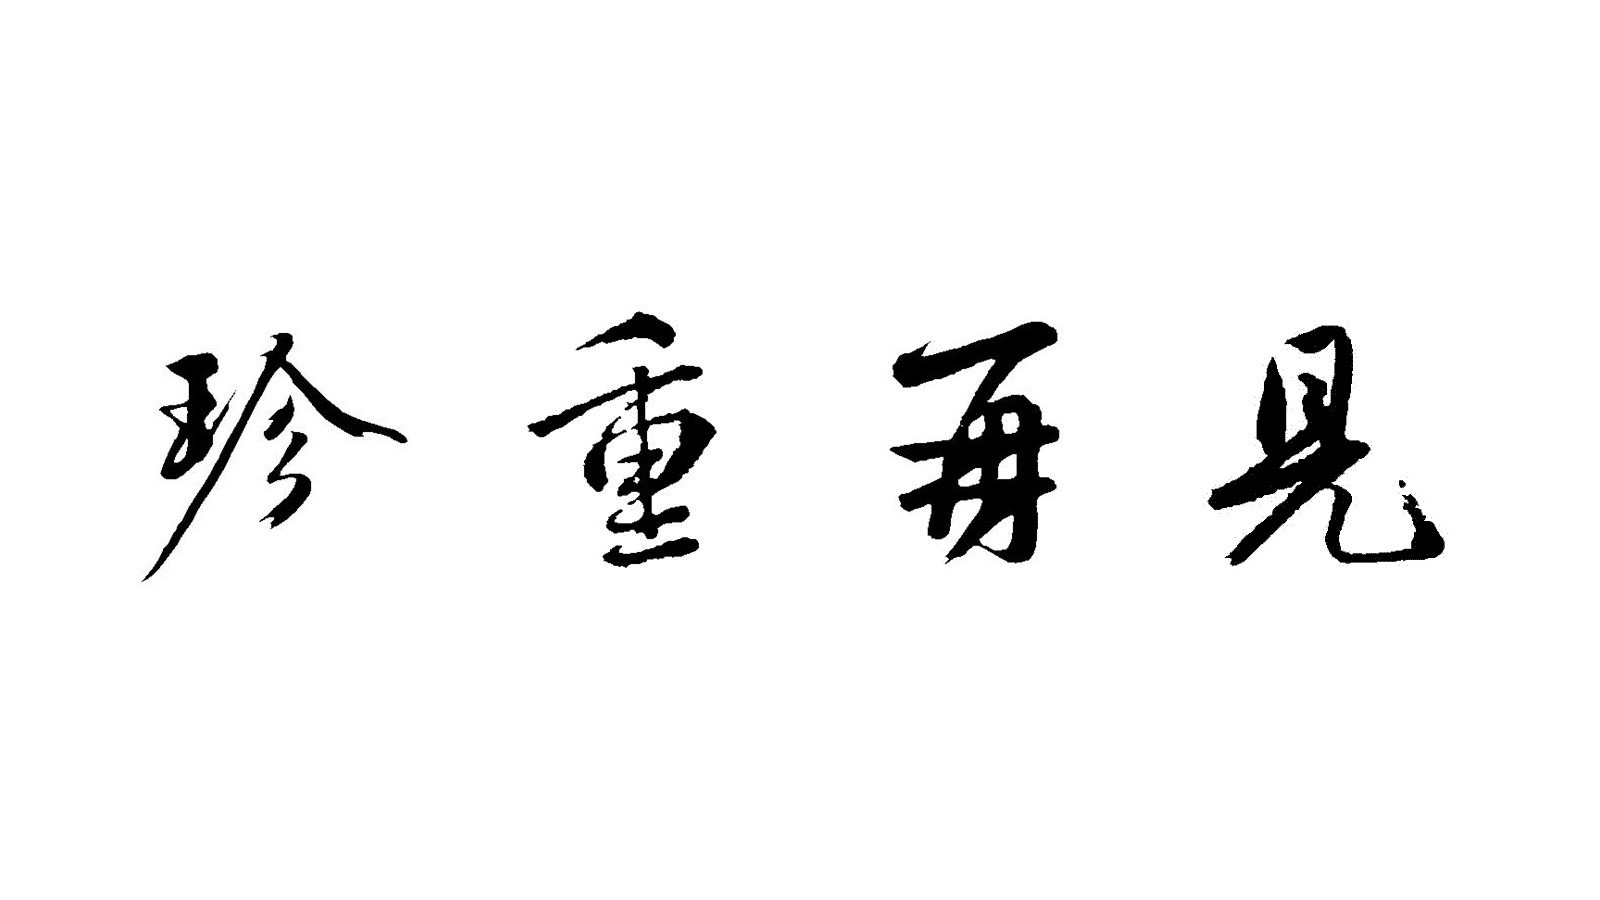 珍重再見